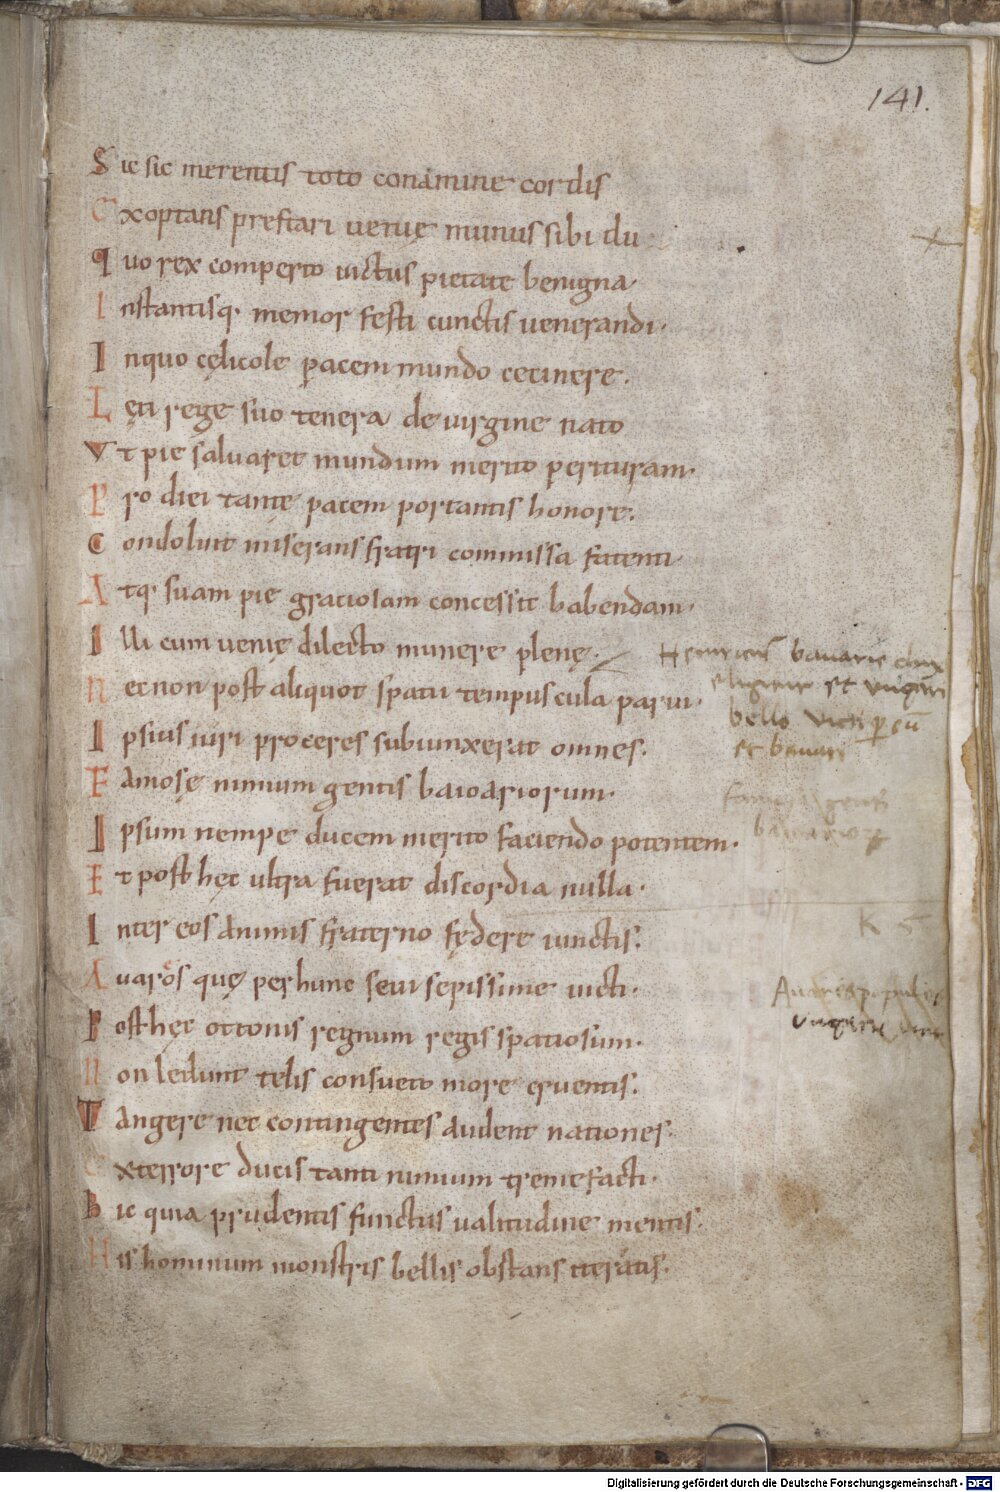 141.
Sic sic merentis toto conamine cordis
Exoptans prestari uenię munus sibi du
quo rex comperto uictus pietate benigna
Instantisq. memor festi cunctis uenerandi.
Inquo cęlicole pacem mundo cecinere.
Lęti rege suo tenera de uirgine nato
Vt pie saluaret mundum merito periturum.
Pro diei tantę pacem portantis honore.
Condoluit miserans fratri commissa fatenti.
Atq. suam pie graciosam concessit habendam.
Illi cum uenię dilecto munere plenę.
necnon post aliquot spatii tempuscula parui.
Ipsius iuri proceres subiunxerat omnes.
Famosę nimium gentis baioariorum.
Ipsum nempe ducem merito faciendo potentem.
Et post hęc ultra fuerat discordia nulla.
Inter eos animis fraterno fędere iunctis.
Auarós quę per hunc seui sepissime uicti.
Post hęc ottonis regnum regis spatiosum.
non ledunt telis consueto more cruentis.
Tangere nec contingentes audent nationes.
Exterrore ducis tanti nimium tremefacti.
Hic quia prudentis functus ualitudine mentis.
His hominum monstris bellis obstans iterátis.
Henricus bauarie dux
eligitur et ungari
bello victi p eū
et bauari
famosa gentis
K S
Auares populi